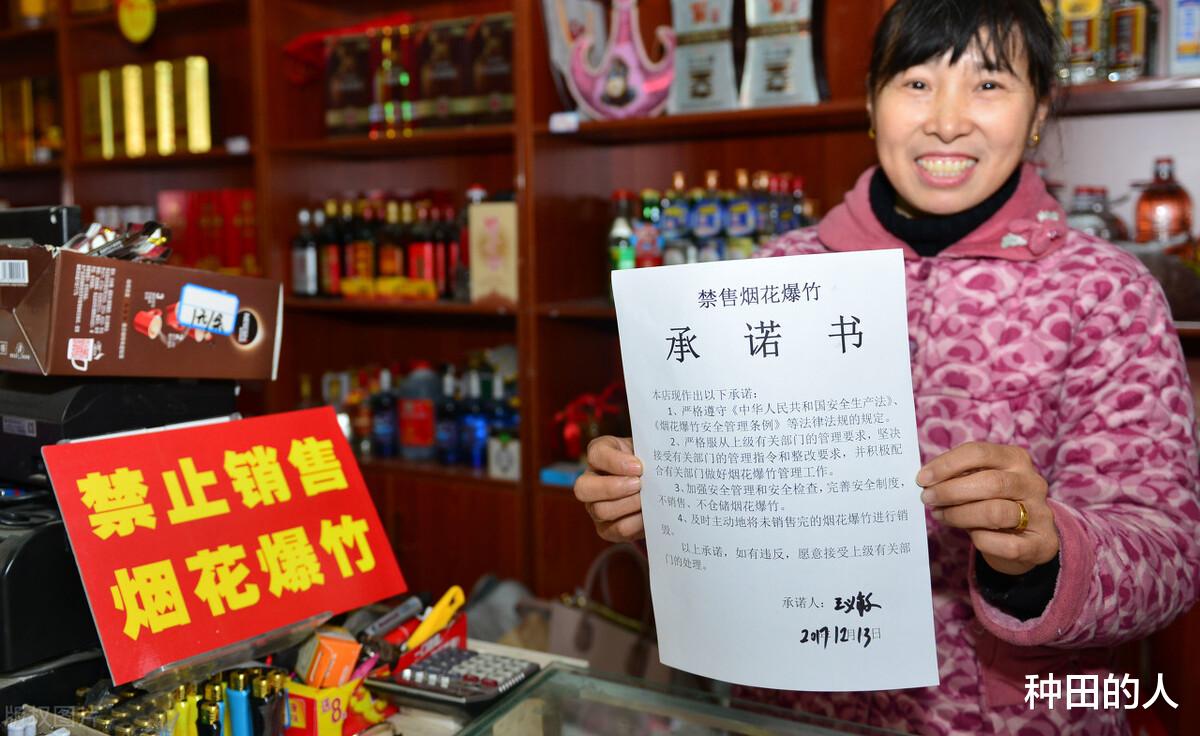 禁止销售
烟花爆竹
1元/个
禁售烟花爆竹
承诺书
本店现作出以下承诺:
1、严格遵守《中华人民共和国安全生产法》、
《烟花爆竹安全管理条例》等法律法规的规定。
2、严格服从上级有关部门的管理要求,坚决
接受有关部门的管理指令和整改要求,并积极配
合有关部门做好烟花爆竹管理工作。
3、加强安全管理和安全检查,完善安全制度,
不销售、不仓储烟花爆竹。
4、及时主动地将未销售完的烟花爆竹进行销
毁。
以上承诺,如有违反,愿意接受上级有关部
门的处理。
承诺人:
2017年12月13日
种田的人
版权图片